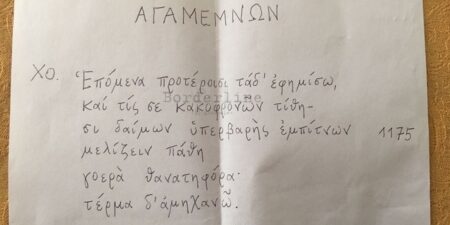 ΑΓΑΜΕΜΝΩΝ
ΧΟ. Ἑπόμενα προτέροισι τάδ' ἐφημίσω,
καί τίς σε κακοφρονῶν τίθη-
Borderline
σι δαίμων ὑπερβαρὴς ἐμπίτνων 1175
μελίζειν πάθη
γοερὰ θανατηφόρα·
τέρμα δ' ἀμηχανῶ.